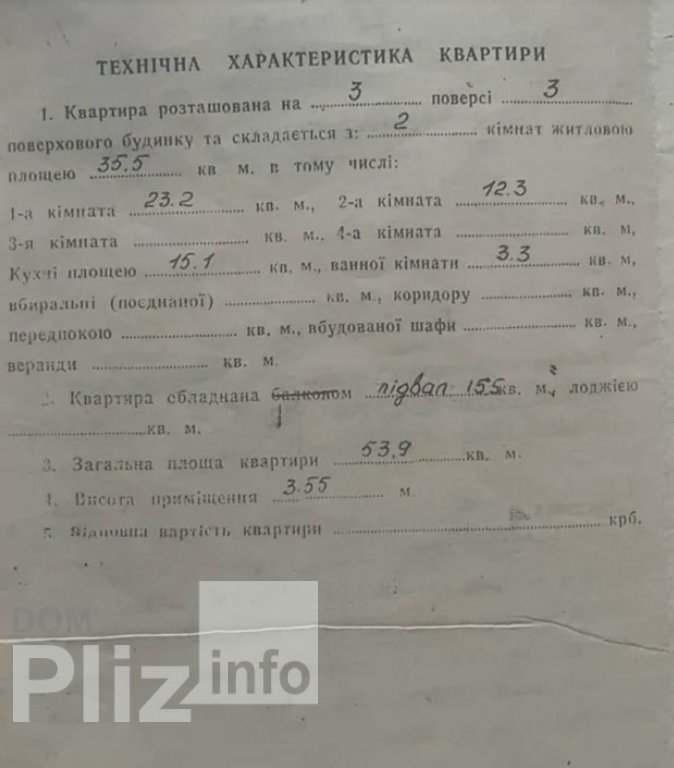 ТЕХНІЧНА ХАРАКТЕРИСТИКА КВАРТИРИ
1. Квартира розташована на 3 поверсі 3
поверхового будинку та складається з: 2 кімнат житловою
площею 35.5 кв м. в тому числі:
1-а кімната 23.2 кв. м., 2-а кімната 12.3 кв. м.,
3-я кімната кв. м.. 4-а кімната кв. м,
Кухні площею 15.1 кв. м., ванної кімнати 3.3 кв. м,
вбиральні (поєднаної) кв. м., коридору кв. м.,
передпокою кв. м., вбудованої шафи кв. м.,
веранди кв. м.
2. Квартира обладнана балконом підвал 155 кв. м, лоджією
кв. м.
3. Загальна площа квартири 53,9 кв. м.
4. Висота приміщення 3.55 м.
5. Відновна вартість квартири крб.
DOM
Pliz info